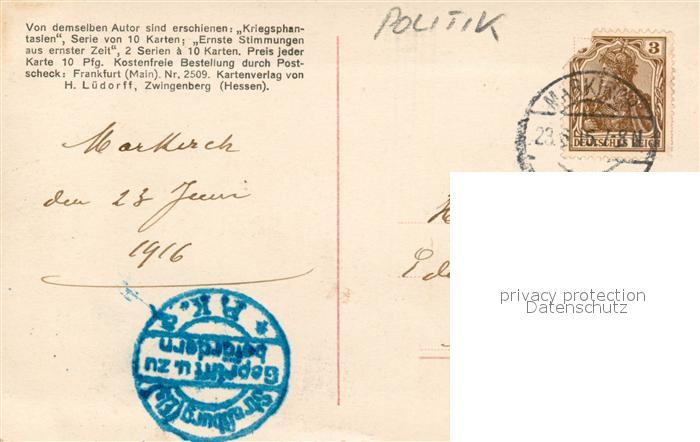 Von demselben Autor sind erschienen: „Kriegsphan-
tasien", Serie von 10 Karten; „Ernste Stimmungen
aus ernster Zeit", 2 Serien à 10 Karten. Preis jeder
Karte 10 Pfg. Kostenfreie Bestellung durch Post-
scheck: Frankfurt (Main). Nr. 2509. Kartenverlag von
H. Lüdorff, Zwingenberg (Hessen).
POLITIK
3
DEUTSCHES REICH
MARKIRCH
Markirch
den 23 Juni
1916
privacy protection
Datenschutz
* A.K.
Geprüft u. zu
befördern
Straßburg (Els.)